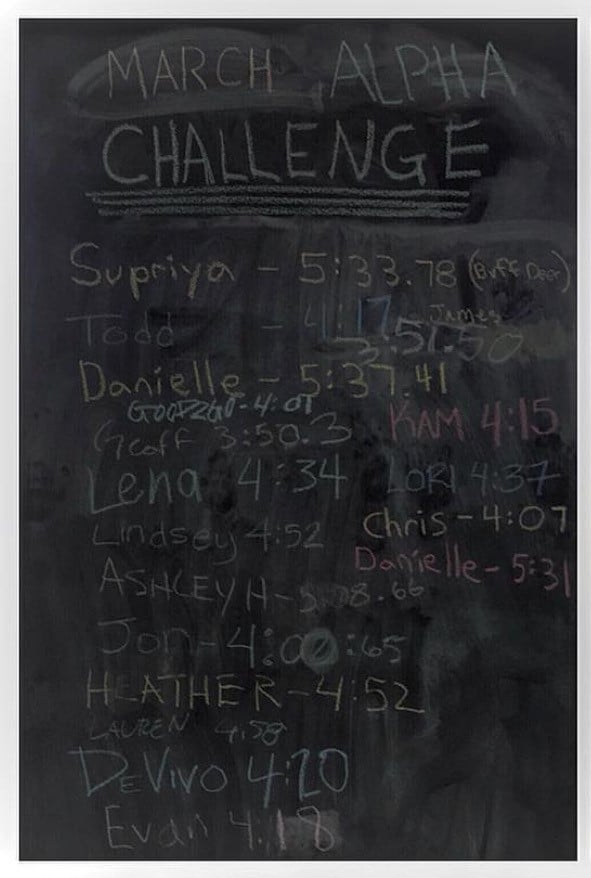 MARCH ALPHA
CHALLENGE
Supriya - 5:33.78 (Buff Deer)
Todd - 4:17
James
3:51.50
Danielle - 5:37.41
GOODZGO - 4:01
KAM 4:15
Geoff 3:50.3
Lena 4:34
LORI 4:37
Chris - 4:07
Lindsey 4:52
Danielle - 5:31
ASHLEY H -
Jon - 4:00:65
HEATHER - 4:52
LAUREN 4:58
DEVIVO 4:20
Evan 4:18